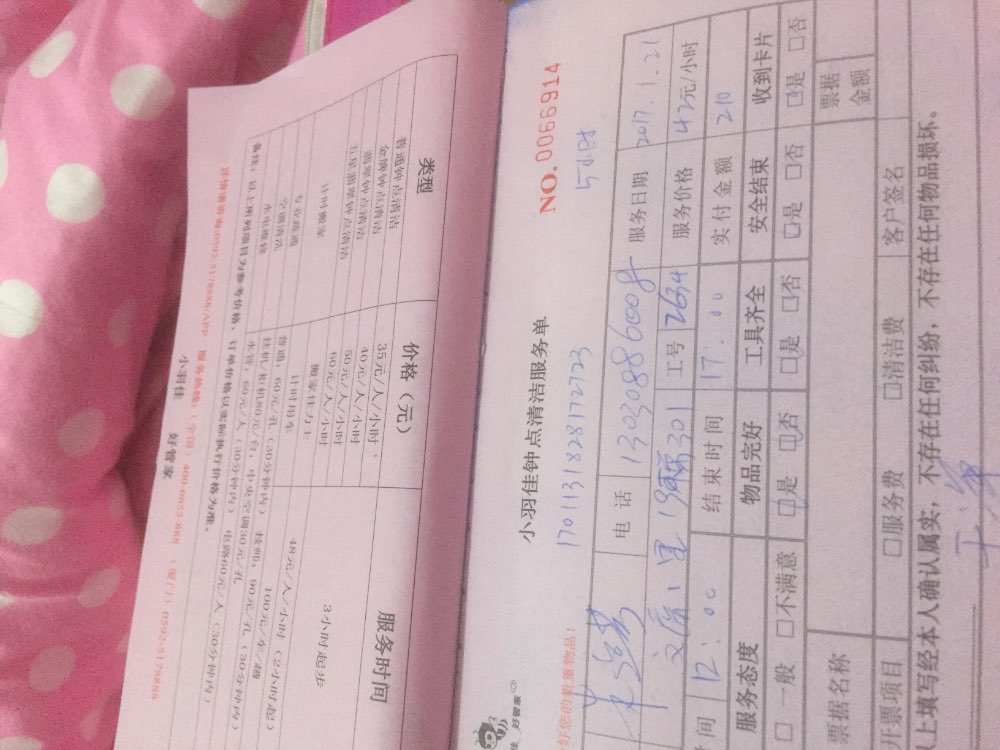 小羽佳钟点清洁服务单
NO. 0066914
1701131828172723
5小时
好您的贵重物品!
电话
13030886008
服务日期
2017.1.21
301
工号
2634
服务价格
42元/小时
间
12:00
结束时间
17:00
实付金额
210
服务态度
物品完好
工具齐全
安全结束
收到卡片
□ 一般 □不满意
□是 □否
□是 □否
□是 □否
□是 □否
票据名称
票据金额
开票项目
□服务费
□清洁费
客户签名
上填写经本人确认属实,不存在任何纠纷,不存在任何物品损坏。
好管家
类型
价格(元)
服务时间
普通钟点清洁
35元/人/小时
金牌钟点清洁
40元/人/小时
翡翠钟点清洁
50元/人/小时
五星翡翠钟点清洁
60元/人/小时
3小时起步
计时搬家
搬家佳力士
48元/人/小时(2小时起)
计时用车
100元/车/趟
专业疏通
普通:60元/孔(30分钟内)
空调清洗
水电维修
水管:60元/人(30分钟内)
电路60元/人(30分钟内)
备注:以上所列项目为参考价格,订单价格以实际执行价格为准。
小羽佳
好管家